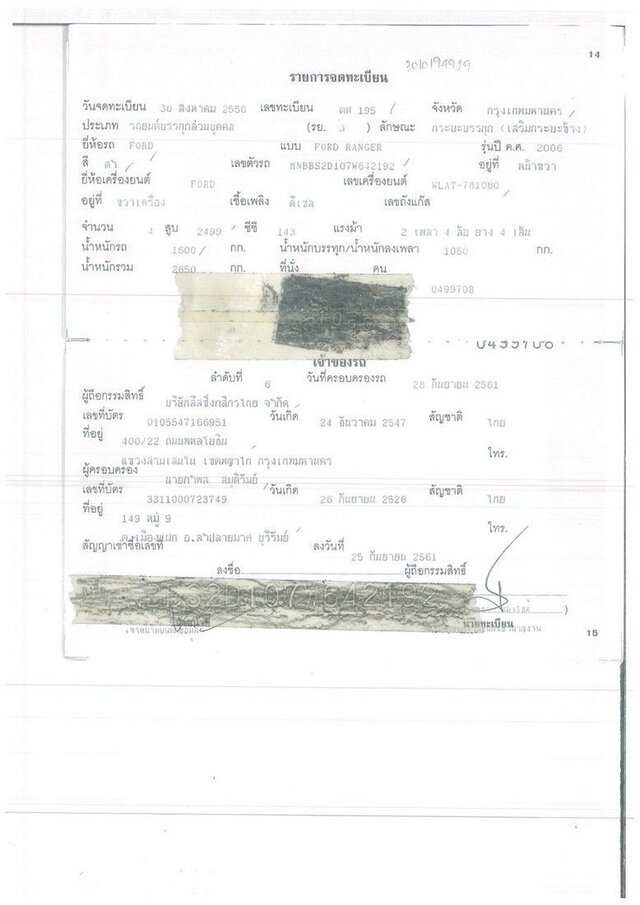 14
2010194929
รายการจดทะเบียน
วันจดทะเบียน 30 สิงหาคม 2550 เลขทะเบียน ตศ 195 / จังหวัด กรุงเทพมหานคร /
ประเภท รถยนต์บรรทุกส่วนบุคคล (รย. 3 ) ลักษณะ กระบะบรรทุก (เสริมกระบะข้าง)
ยี่ห้อรถ FORD แบบ FORD RANGER รุ่นปี ค.ศ. 2006
สี ดำ / เลขตัวรถ MNBBS2D107W642192 / อยู่ที่ หน้าขวา
ยี่ห้อเครื่องยนต์ FORD เลขเครื่องยนต์ WLAT-781080 /
อยู่ที่ ขวาเครื่อง เชื้อเพลิง ดีเซล เลขถังแก๊ส
จำนวน 4 สูบ 2499 / ซีซี 143 แรงม้า 2 เพลา 4 ล้อ ยาง 4 เส้น
น้ำหนักรถ 1600 / กก. น้ำหนักบรรทุก/น้ำหนักลงเพลา 1050 กก.
น้ำหนักรวม 2650 กก. ที่นั่ง คน
0499708
เจ้าของรถ
ลำดับที่ 6 วันที่ครอบครองรถ 28 กันยายน 2561
ผู้ถือกรรมสิทธิ์ บริษัทลีสซิ่งกสิกรไทย จำกัด /
เลขที่บัตร 0105547166951 วันเกิด 24 ธันวาคม 2547 สัญชาติ ไทย
ที่อยู่ 400/22 ถนนพหลโยธิน /
แขวงสามเสนใน เขตพญาไท กรุงเทพมหานคร โทร.
ผู้ครอบครอง
เลขที่บัตร 3311000723749 วันเกิด 26 กันยายน 2526 สัญชาติ ไทย
ที่อยู่ 149 หมู่ 9
ต.เมืองแฝก อ.ลำปลายมาศ บุรีรัมย์ โทร.
สัญญาเช่าซื้อเลขที่ ลงวันที่ 25 กันยายน 2561
ลงชื่อ ผู้ถือกรรมสิทธิ์
ลงชื่อ
นายทะเบียน
15